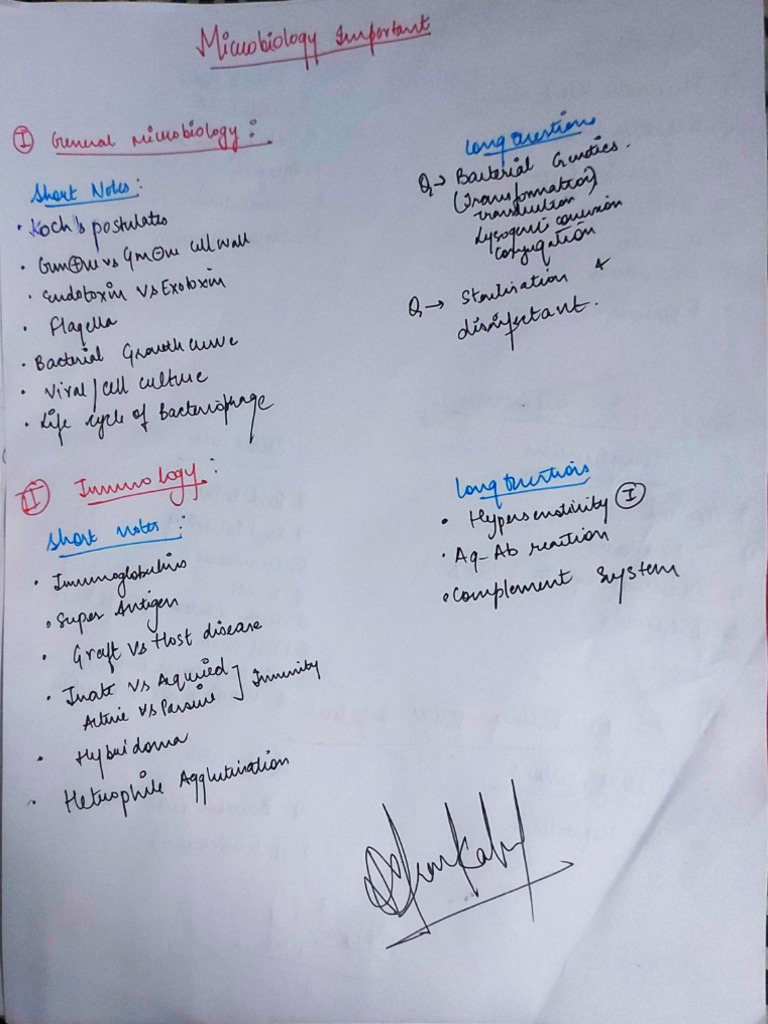 Microbiology Important
I General Microbiology :
Short Notes :
• Koch's postulates
• Gm⊕ve vs Gm⊖ve cell wall
• Endotoxin vs Exotoxin
• Flagella
• Bacterial Growth curve
• Viral / cell culture
• Life cycle of Bacteriophage
Long Questions
Q → Bacterial Genetics.
(Transformation)
Transduction
Lysogenic conversion
Conjugation
Q → Sterilisation &
disinfectant.
II Immunology :
Short notes :
• Immunoglobulins
• Super Antigen
• Graft vs Host disease
• Inate vs Aquired ] Immunity
Active vs Passive
• Hybridoma
• Heterophile Agglutination
Long Questions
• Hypersensitivity I
• Ag-Ab reaction
• Complement System